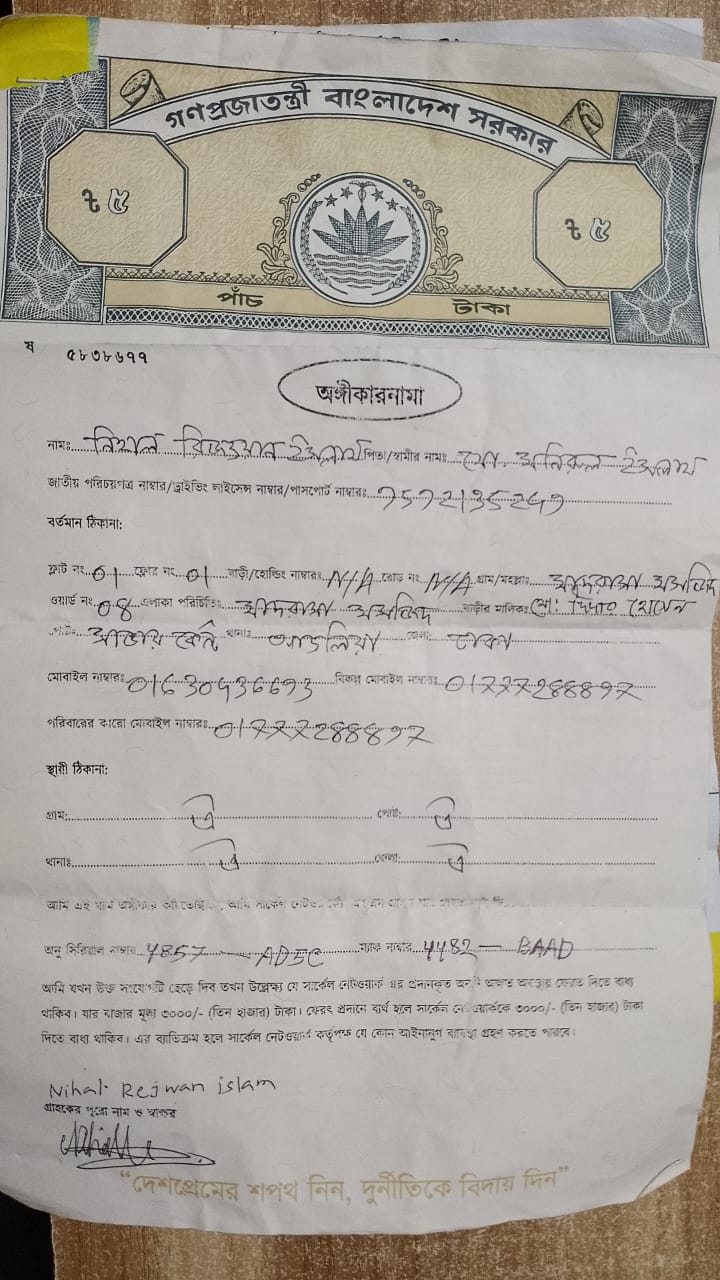 গণপ্রজাতন্ত্রী বাংলাদেশ সরকার
৳ ৫ ৳ ৫
পাঁচ টাকা
ষ ৫৮৩৮৬৭৭
অঙ্গীকারনামা
নামঃ নিহাল রিজওয়ান ইসলাম পিতা/স্বামীর নামঃ মো. ইসলাম
জাতীয় পরিচয়পত্র নাম্বার/ড্রাইভিং লাইসেন্স নাম্বার/পাসপোর্ট নাম্বারঃ
বর্তমান ঠিকানা:
ফ্লাট নং 01 ফ্লোর নং 01 বাড়ী/হোল্ডিং নাম্বারঃ N/A রোড নং N/A গ্রাম/মহল্লাঃ মাদরাসা মসজিদ
ওয়ার্ড নং 08 এলাকা পরিচিতিঃ মাদরাসা মসজিদ বাড়ীর মালিকঃ মো: হোসেন
থানাঃ আশুলিয়া জেলা: ঢাকা
মোবাইল নাম্বারঃ বিকল্প মোবাইল নাম্বারঃ 01777288897
পরিবারের কারো মোবাইল নাম্বারঃ 01777288897
স্থায়ী ঠিকানা:
গ্রাম: ঐ পোষ্ট: ঐ
থানাঃ ঐ জেলা: ঐ
আমি এই মর্মে অঙ্গীকার করিতেছি আমি সার্কেল
অনু সিরিয়াল নাম্বার 4857 — AD5C ম্যাক নাম্বার 4482 — BAAD
আমি যখন উক্ত সংযোগটি ছেড়ে দিব তখন উল্লেক্ষ্য যে সার্কেল নেটওয়ার্ক এর প্রদানকৃত অনু অবস্থায় ফেরত দিতে বাধ্য
থাকিব। যার বাজার মূল্য ৩০০০/- (তিন হাজার) টাকা। ফেরৎ প্রদানে ব্যর্থ হলে সার্কেল নেটওয়ার্ককে ৩০০০/- (তিন হাজার) টাকা
দিতে বাধ্য থাকিব। এর ব্যতিক্রম হলে সার্কেল নেটওয়ার্ক কর্তৃপক্ষ যে কোন আইনানুগ ব্যবস্থা গ্রহণ করতে পারবে।
Nihal Rejwan islam
গ্রাহকের পুরো নাম ও স্বাক্ষর
“দেশপ্রেমের শপথ নিন, দুর্নীতিকে বিদায় দিন”